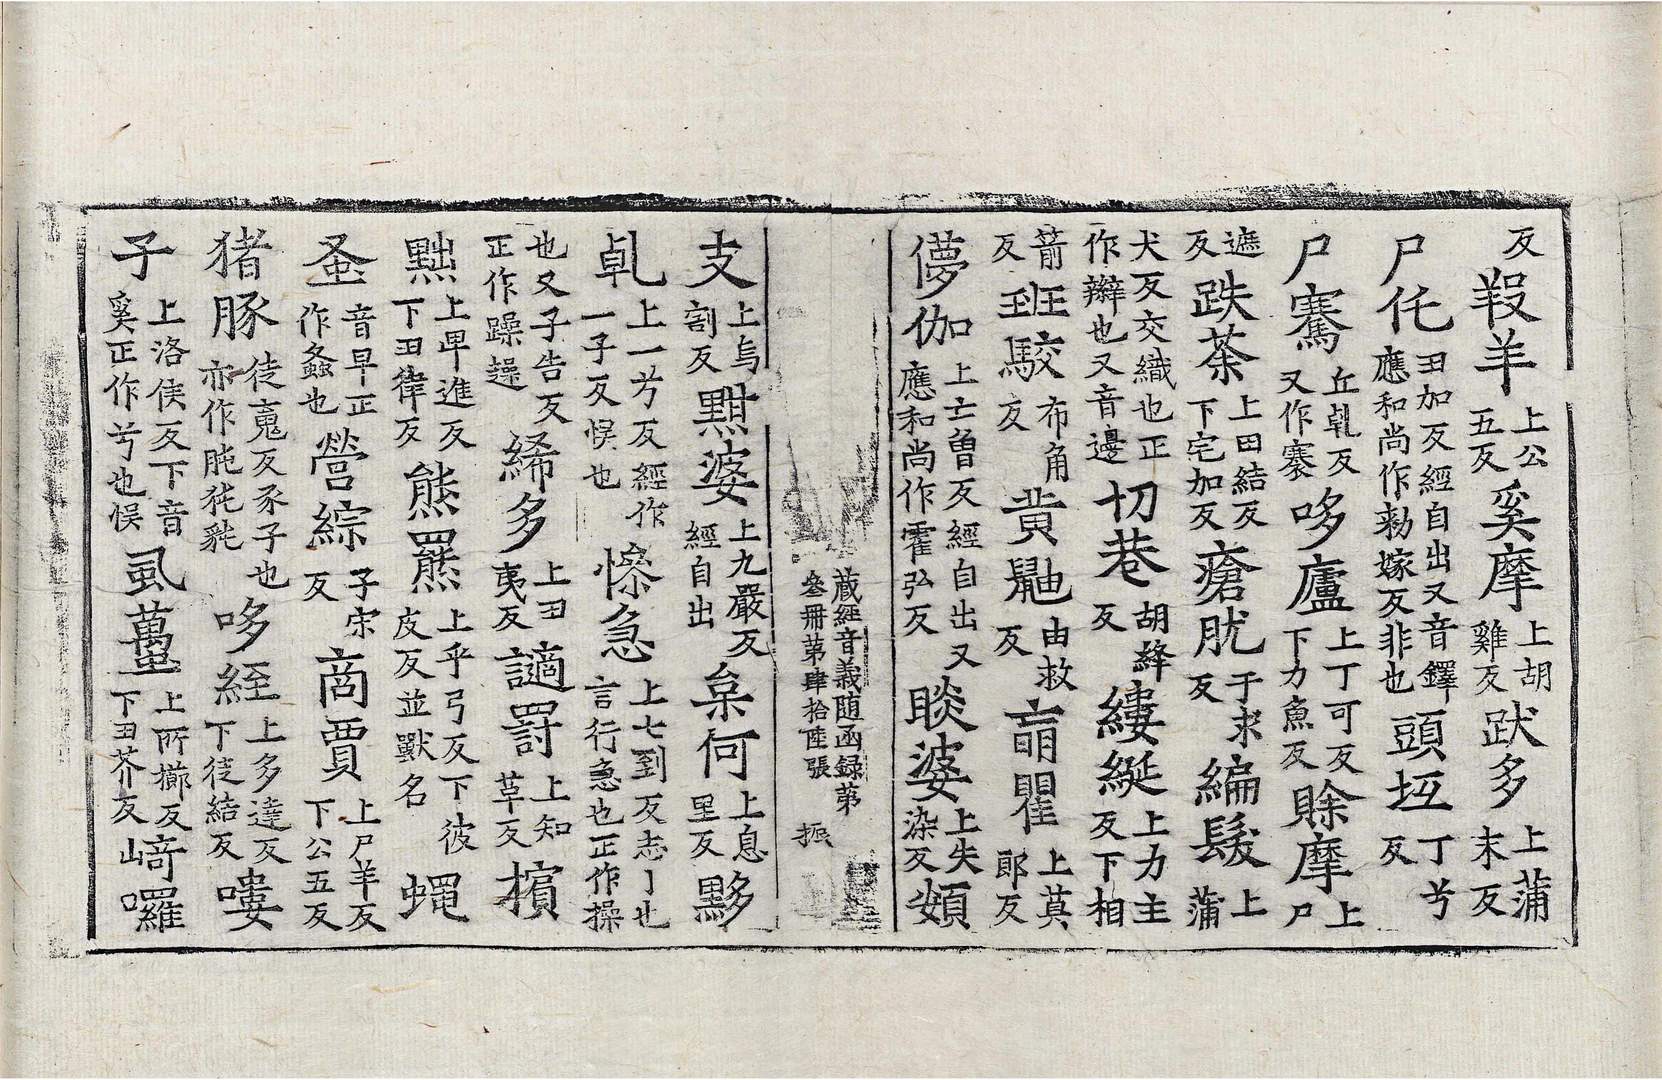 反羖羊上公五反奚摩上胡雞反跋多上蒲末反
尸仛田加反經自出又音鐸應和尚作勑嫁反非也頭坘丁兮反
尸騫丘乹反又作寨哆廬上丁可反下力魚反賖摩上尸
遮反跌荼上田結反下宅加反瘡肬于求反編髮上蒲
犬反交織也正作辮也又音邊切巷胡絳反縷綖上力主反下相
箭反班駮布角反黄鼬由救反盲瞿上莫郎反
儚伽上亡曽反經自出又應和尚作霍弘反睒婆上失染反頞
藏經音義随函録第叄册第肆拾陸張 振
支上烏割反黚婆上九嚴反經自出枲何上息里反黟
乹上一兮反經作一子反悮也懆急上七到反志丁也言行急也正作操
也又子告反正作躁趮絺多上丑夷反讁罸上知革反擯
黜上卑進反下丑律反熊羆上乎弓反下彼皮反並獸名蝿
蚤音早正作䗢也營綜子宋反商賈上尸羊反下公五反
猪豚徒䰟反豕子也亦作肫㹠㲋哆絰上多達反下徒結反嘍
子上洛侯反下音奚正作兮也悮虱蠆上所櫛反下丑芥反㟢囉